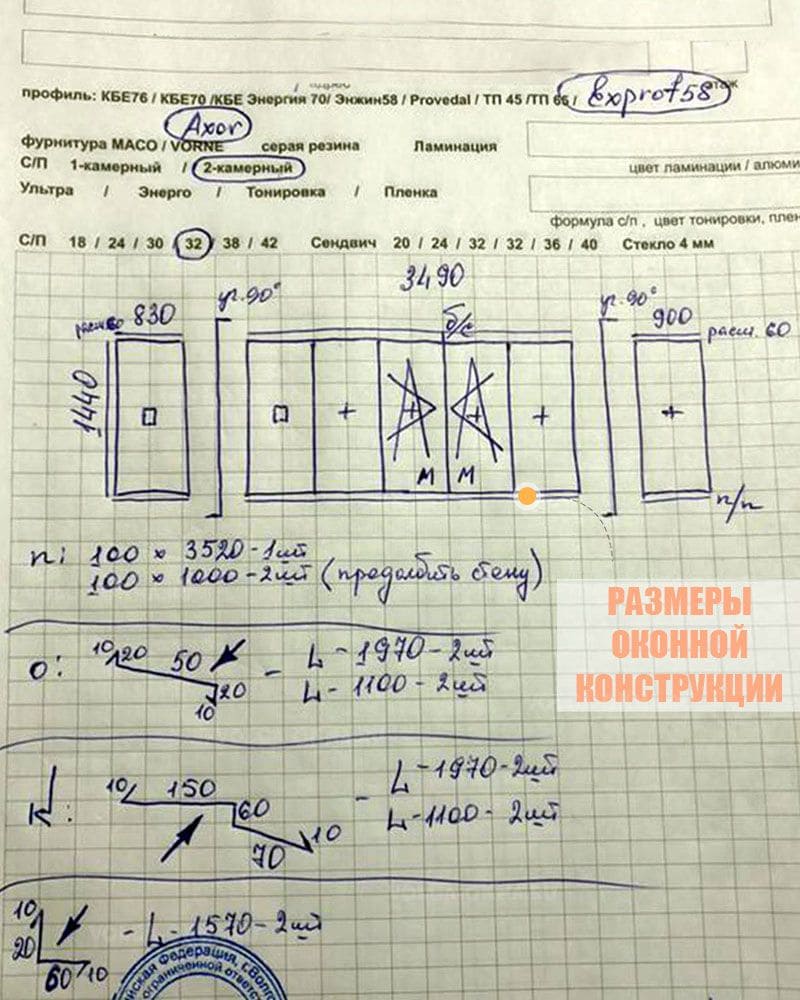 этаж
профиль: КБЕ76 / КБЕ70 /КБЕ Энергия 70/ Энжин58 / Provedal / ТП 45 /ТП 65 / Exprof58
Axor
фурнитура MACO / VORNE серая резина Ламинация
С/П 1-камерный / 2-камерный
цвет ламинации / алюми
Ультра / Энерго / Тонировка / Пленка
формула с/п , цвет тонировки, плен
С/П 18 / 24 / 30 / 32 / 38 / 42 Сендвич 20 / 24 / 32 / 32 / 36 / 40 Стекло 4 мм
3490
уг. 90° уг. 90°
расш. 60 830 б/с 900 расш. 60
1440
М М
п/п
п: 100 × 3520 - 1шт
100 × 1000 - 2шт (продолбить стену)
РАЗМЕРЫ
ОКОННОЙ
КОНСТРУКЦИИ
о: 10 20 50 20 10 - L - 1970 - 2шт
L - 1100 - 2шт
к: 10 150 60 70 10 - L - 1970 - 2шт
L - 1100 - 2шт
10 20 60 10 - L - 1570 - 2шт
йская Федерация, г.Волг
ограниченной ответс